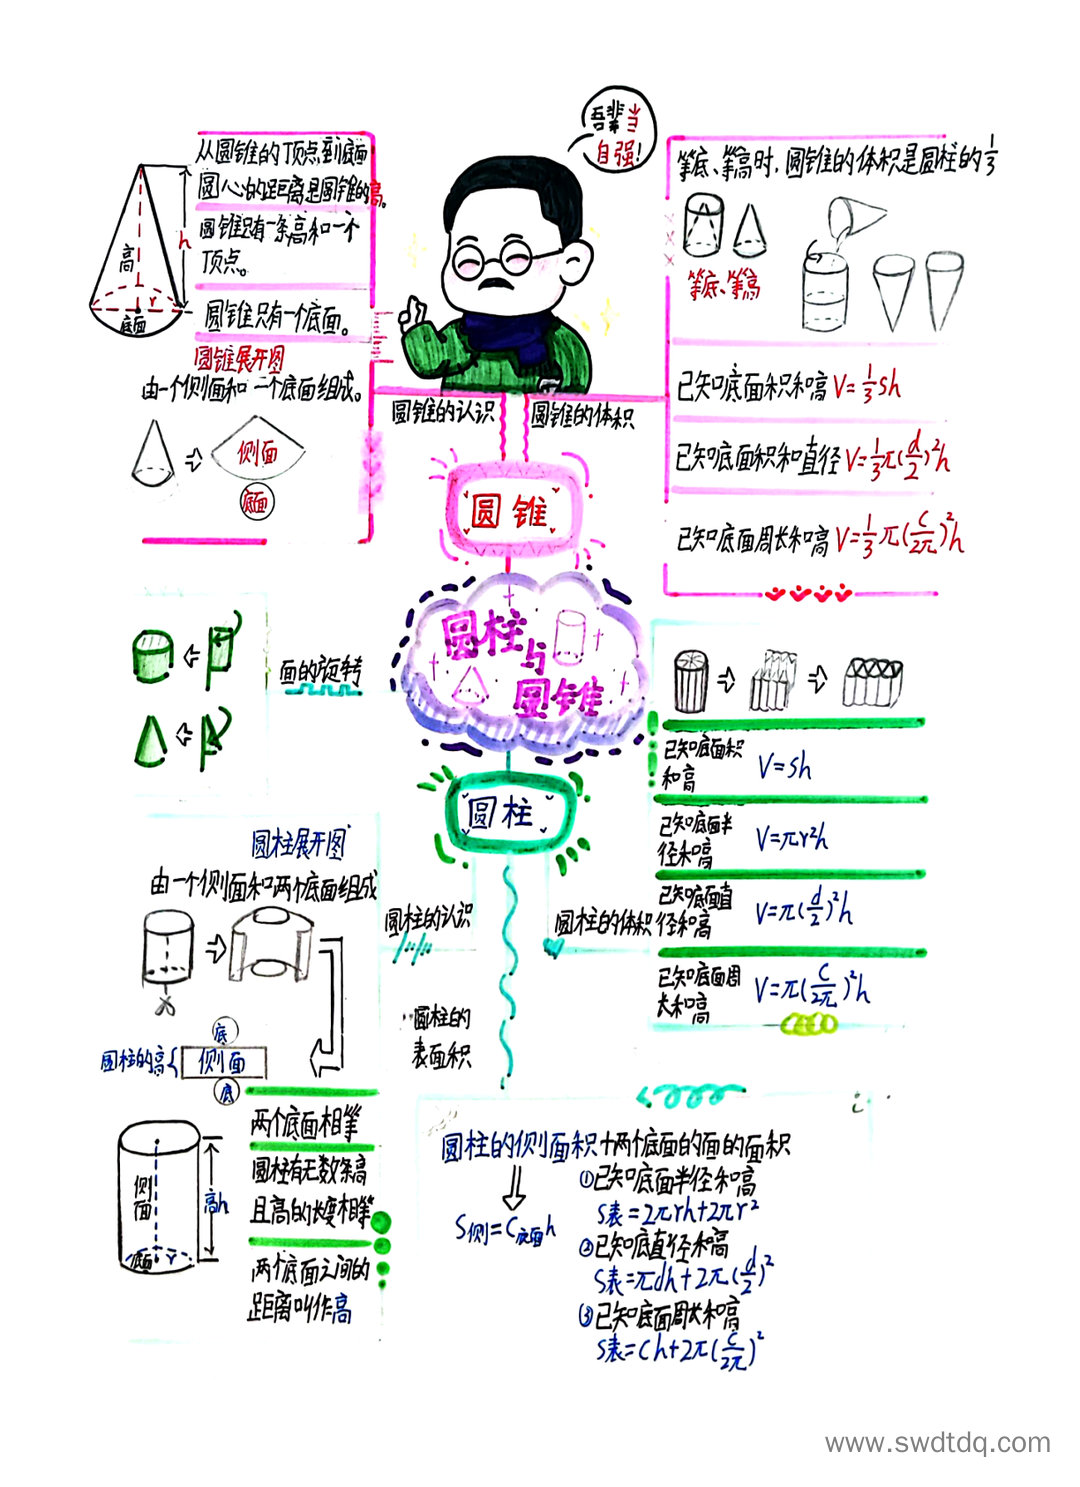 吾辈当
自强!
从圆锥的顶点到底面
圆心的距离是圆锥的高。
圆锥只有一条高和一个
顶点。
圆锥只有一个底面。
高
h
r
底面
圆锥展开图
由一个侧面和一个底面组成。
侧面
底面
圆锥的认识
圆锥的体积
等底、等高时,圆锥的体积是圆柱的1/3
等底、等高
已知底面积和高 V=1/3sh
已知底面积和直径 V=1/3π(d/2)²h
已知底面周长和高 V=1/3π(C/2π)²h
圆锥
圆柱
与
圆锥
面的旋转
圆柱
已知底面积
和高
V=sh
已知底面半
径和高
V=πr²h
已知底面直
径和高
V=π(d/2)²h
已知底面周
长和高
V=π(C/2π)²h
圆柱的认识
圆柱的体积
圆柱展开图
由一个侧面和两个底面组成
底
圆柱的高
侧面
底
圆柱的
表面积
侧
面
高h
底面
r
两个底面相等
圆柱有无数条高
且高的长度相等
两个底面之间的
距离叫作高
圆柱的侧面积+两个底面的面的面积
S侧=C底面h
①已知底面半径和高
S表=2πrh+2πr²
②已知底直径和高
S表=πdh+2π(d/2)²
③已知底面周长和高
S表=Ch+2π(C/2π)²
www.swdtdq.com